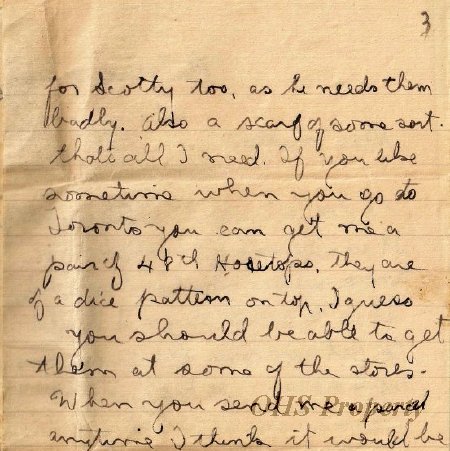 3
for Scotty too, as he needs them
badly. Also a scarf of some sort.
thats all I need. If you like
sometime when you go to
Toronto you can get me a
pair of 48th Hosetops. They are
of a dice pattern on top, I guess
you should be able to get
them at some of the stores.
When you send me a parcel
anytime I think it would be
OHS Property